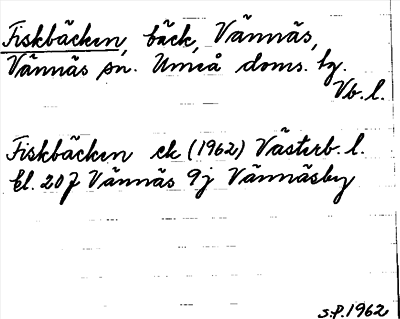 Fiskbäcken, bäck, Vännäs,
Vännäs sn. Umeå doms. by.
Vb. l.
Fiskbäcken ek (1962) Västerb. l.
bl. 207 Vännäs 9j Vännäsby
S.P. 1962